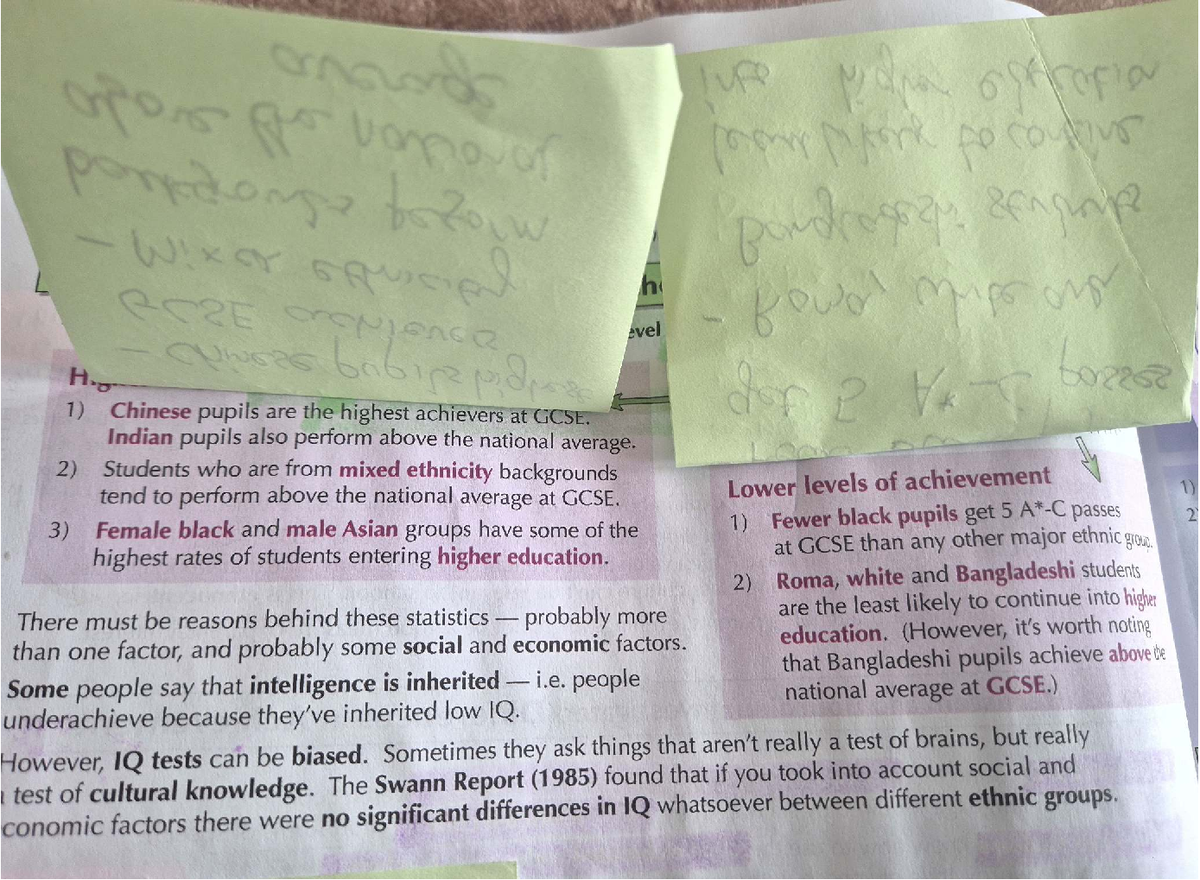 - Chinese pupils highest
GCSE achievers
- Mixed ethnicity
backgrounds perform
above the national
average
get 5 A*-C passes
- Roma, white and
Bangladeshi students
least likely to continue
into higher education
evel
1) Chinese pupils are the highest achievers at GCSE.
Indian pupils also perform above the national average.
2) Students who are from mixed ethnicity backgrounds
tend to perform above the national average at GCSE.
3) Female black and male Asian groups have some of the
highest rates of students entering higher education.
Lower levels of achievement
1) Fewer black pupils get 5 A*-C passes
at GCSE than any other major ethnic group.
2) Roma, white and Bangladeshi students
are the least likely to continue into higher
education. (However, it's worth noting
that Bangladeshi pupils achieve above the
national average at GCSE.)
There must be reasons behind these statistics — probably more
than one factor, and probably some social and economic factors.
Some people say that intelligence is inherited — i.e. people
underachieve because they've inherited low IQ.
However, IQ tests can be biased. Sometimes they ask things that aren't really a test of brains, but really
test of cultural knowledge. The Swann Report (1985) found that if you took into account social and
conomic factors there were no significant differences in IQ whatsoever between different ethnic groups.
1)
2